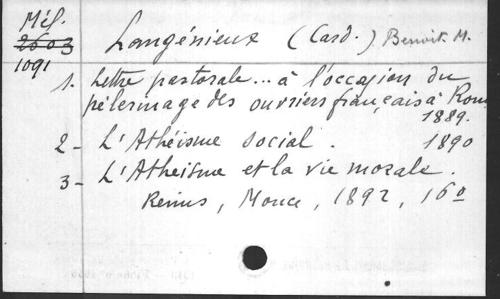 Mél.
2603
1091
Langénieux (Card.) Benoit M.
1. Lettre pastorale... à l'occasion du
pèlerinage des ouvriers français à Rom
1889.
2- L'Athéisme social. 1890
3- L'Athéisme et la vie morale.
Reims, Monce, 1892, 16o